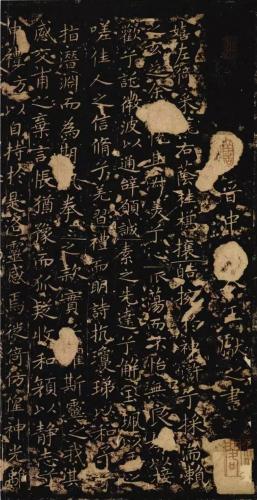 晉中令王獻之書
嬉左倚采右蔭桂攘皓於神滸兮採湍瀨
之余悅淑美兮心振蕩而不怡無良接
歡兮託微波以通辭願誠素之先達兮解玉珮要之
嗟佳人之信脩兮羌習禮而明詩抗瓊珶以和予兮
指潛淵而為期執拳之款實斯靈之我欺
感交甫之棄言悵猶豫而狐疑收和顏以靜志兮
申禮防以自持於是洛靈感焉徙倚仿偟神光離